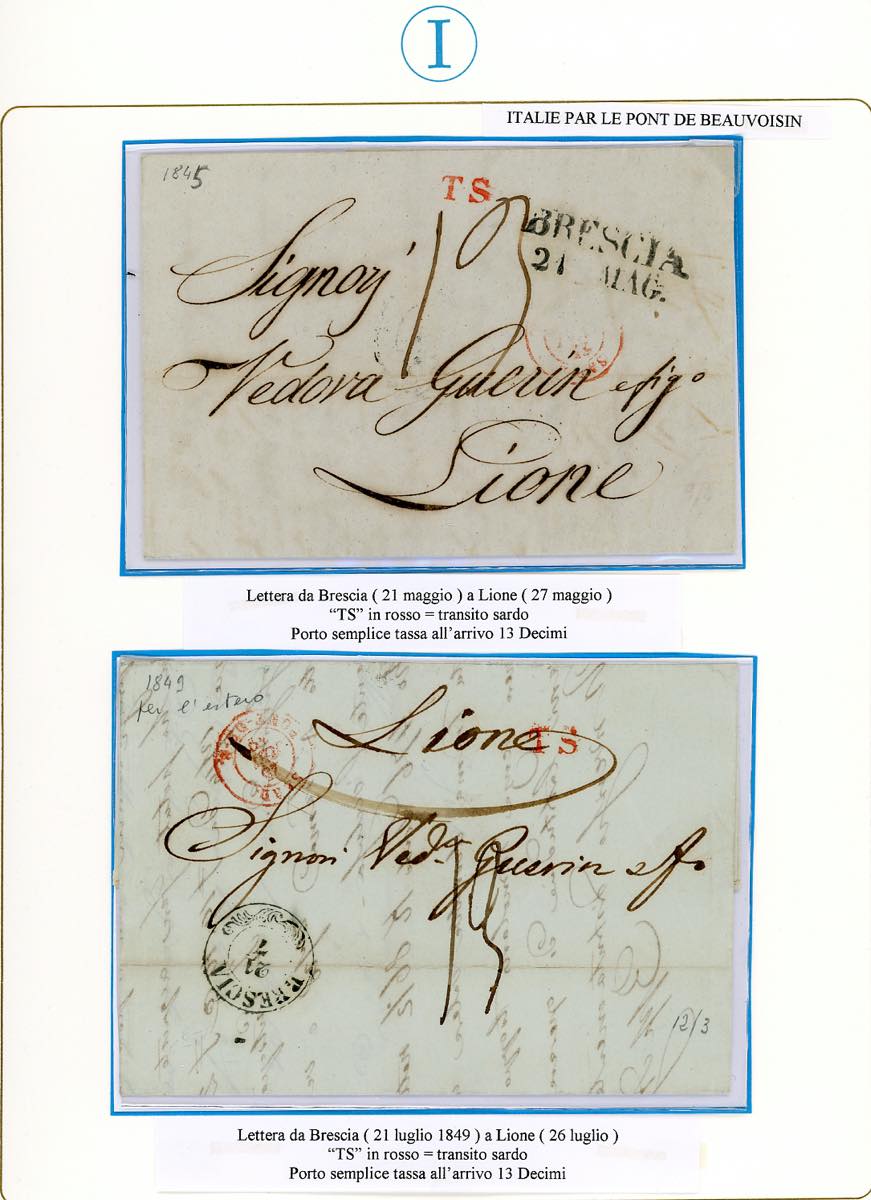 I
ITALIE PAR LE PONT DE BEAUVOISIN
1845
TS
13
BRESCIA
21 MAG.
Signori
Vedova Guerin e figo
Lione
Lettera da Brescia ( 21 maggio ) a Lione ( 27 maggio )
“TS” in rosso = transito sardo
Porto semplice tassa all’arrivo 13 Decimi
1849
per l'estero
Lione
TS
Signori Ved.a Guerin e fo
13
21
7
BRESCIA
12/3
Lettera da Brescia ( 21 luglio 1849 ) a Lione ( 26 luglio )
“TS” in rosso = transito sardo
Porto semplice tassa all’arrivo 13 Decimi